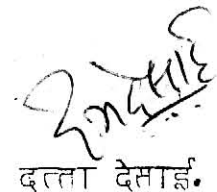 दत्ता देसाई.